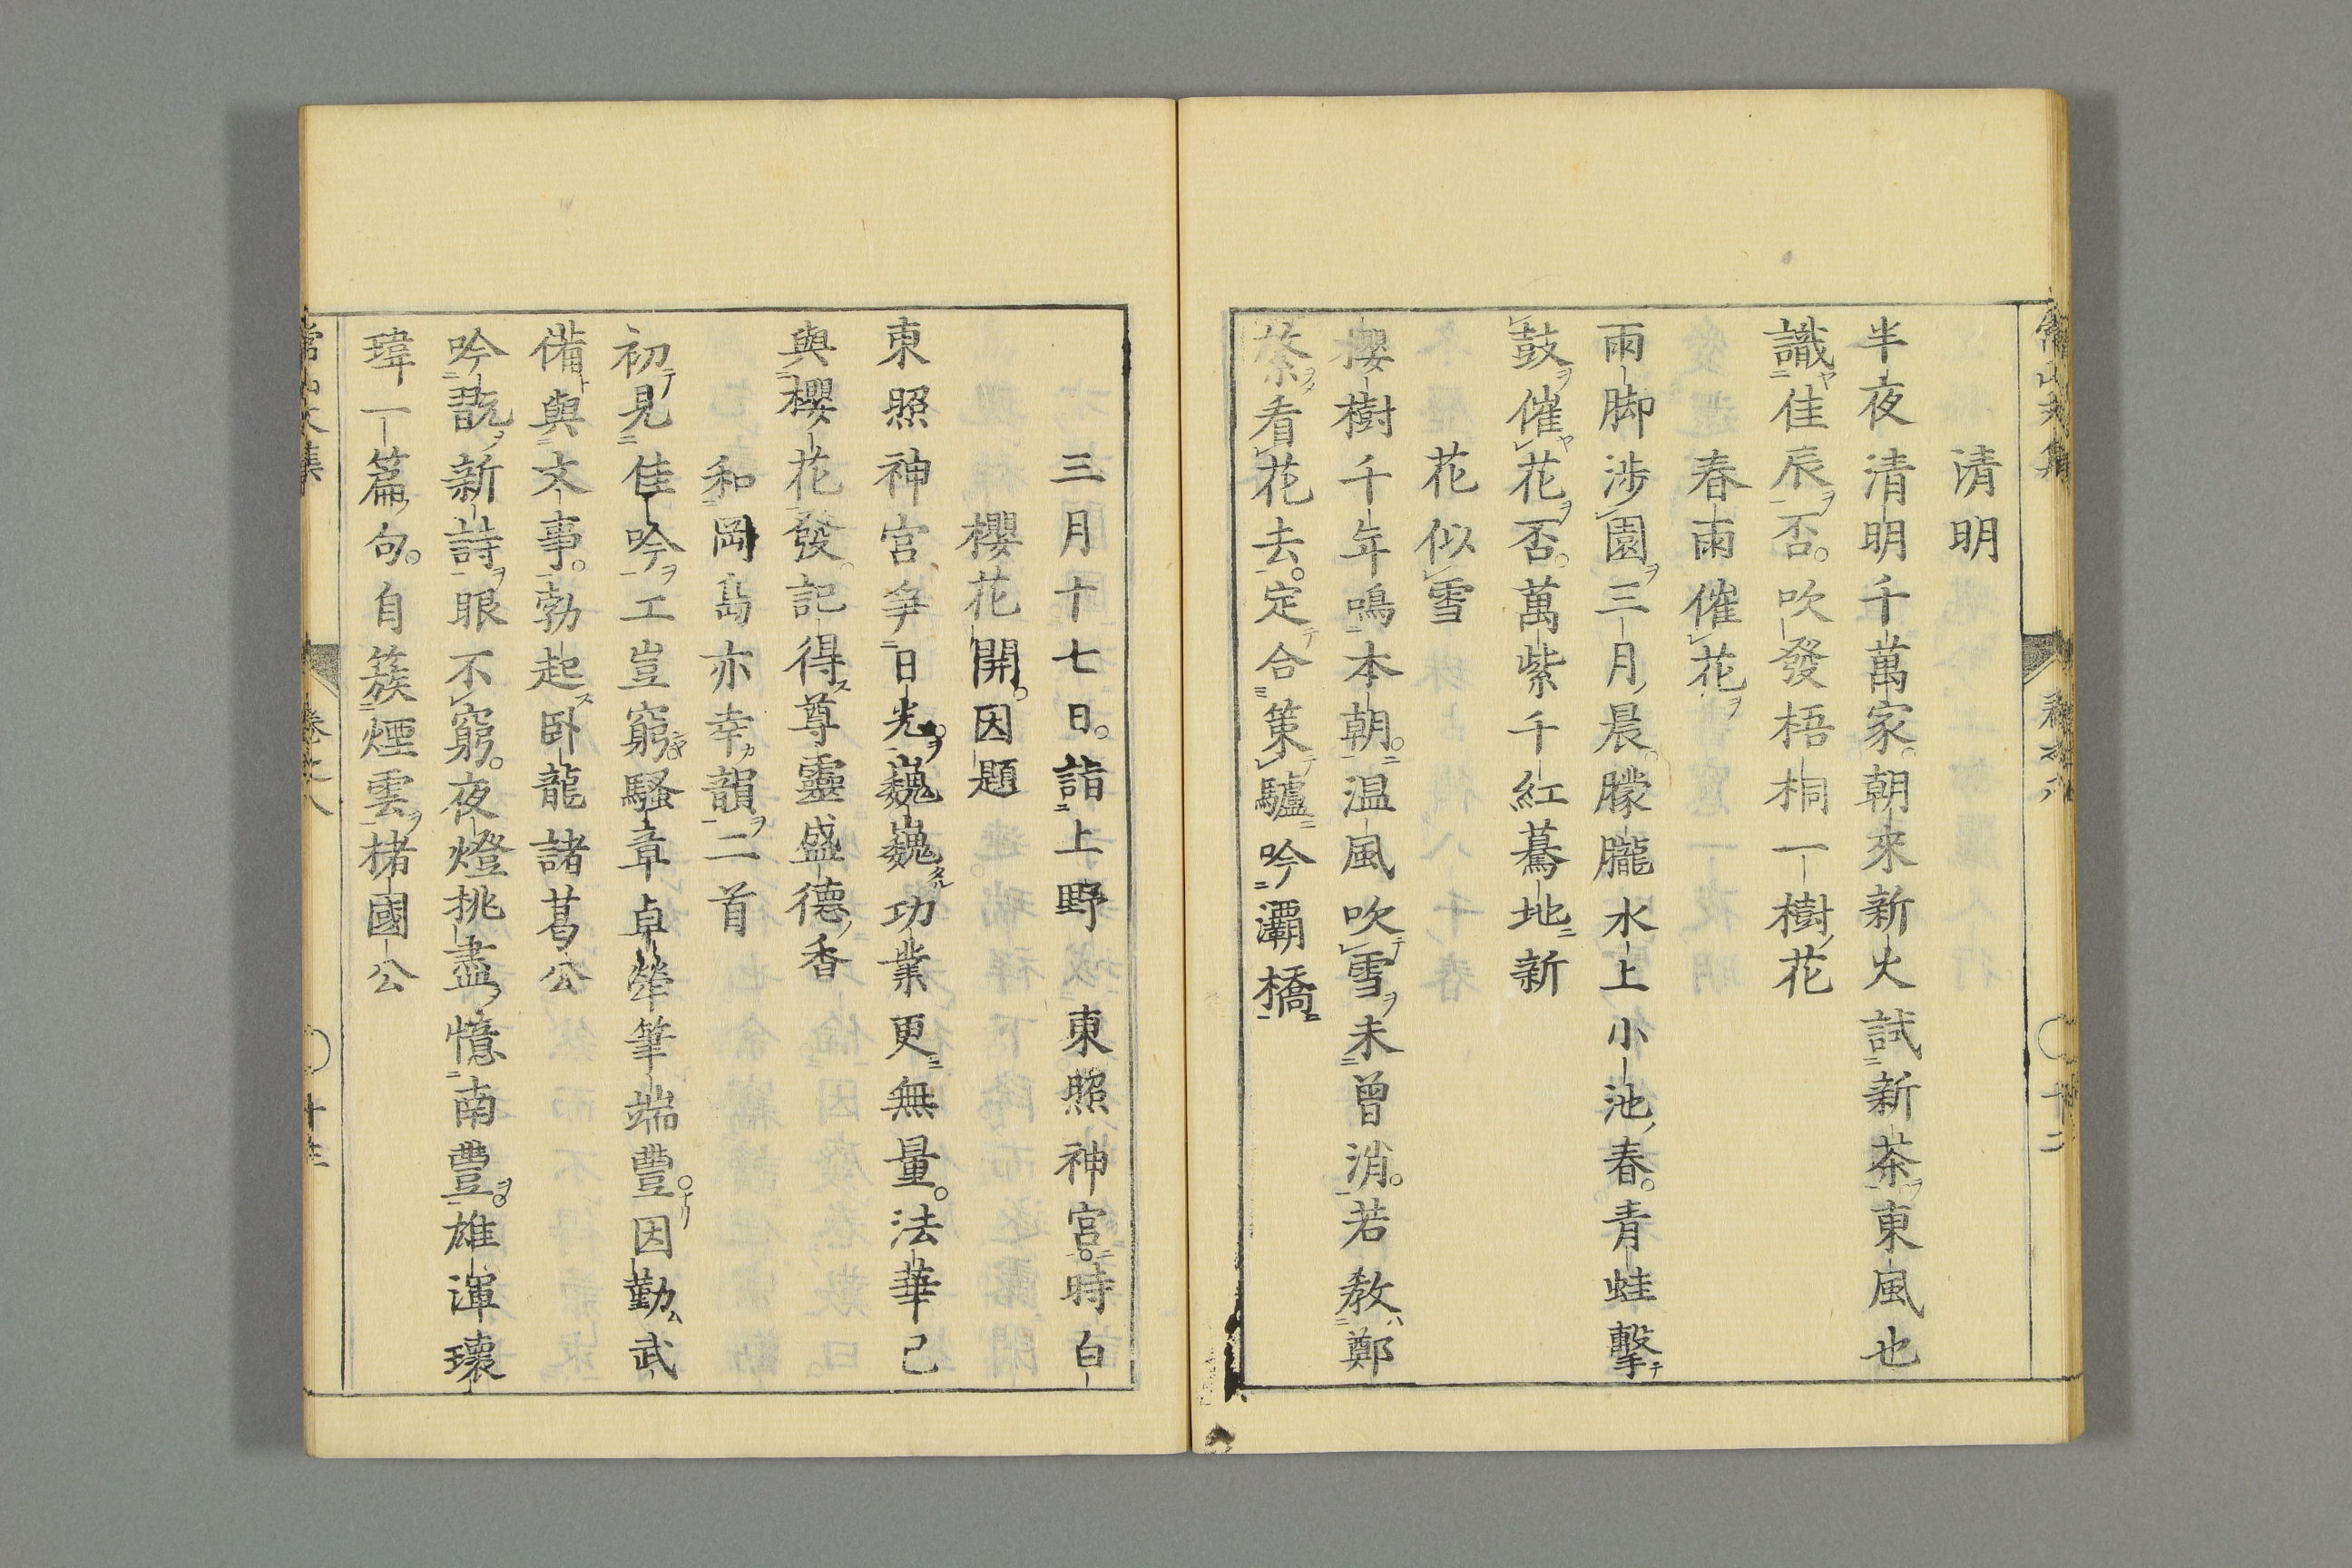 常山文集 卷之八 〇 十二
清明
半夜清明千萬家。朝來新火試新茶東風也
識佳辰否。吹發梧桐一樹花
春雨催花
雨脚涉園三月晨。朦朧水上小池春。青蛙擊
鼓催花否。萬紫千紅驀地新
花似雪
櫻樹千年鳴本朝。温風吹雪未曾消。若教鄭
綮看花去。定合策驢吟灞橋
三月十七日。詣上野 東照神宮。時白
櫻花開。因題
東照神宮爭日光。巍巍功業更無量。法華已
與櫻花發。記得尊靈盛德香
和岡島亦幸韻二首
初見佳吟工豈窮騷章卓犖筆端豐。因勤武
備與文事。勃起卧龍諸葛公
吟翫新詩眼不窮。夜燈挑盡憶南豐。雄渾瓌
瑋一篇句。自簇煙雲楮國公
常山文集 卷之八 〇 十三